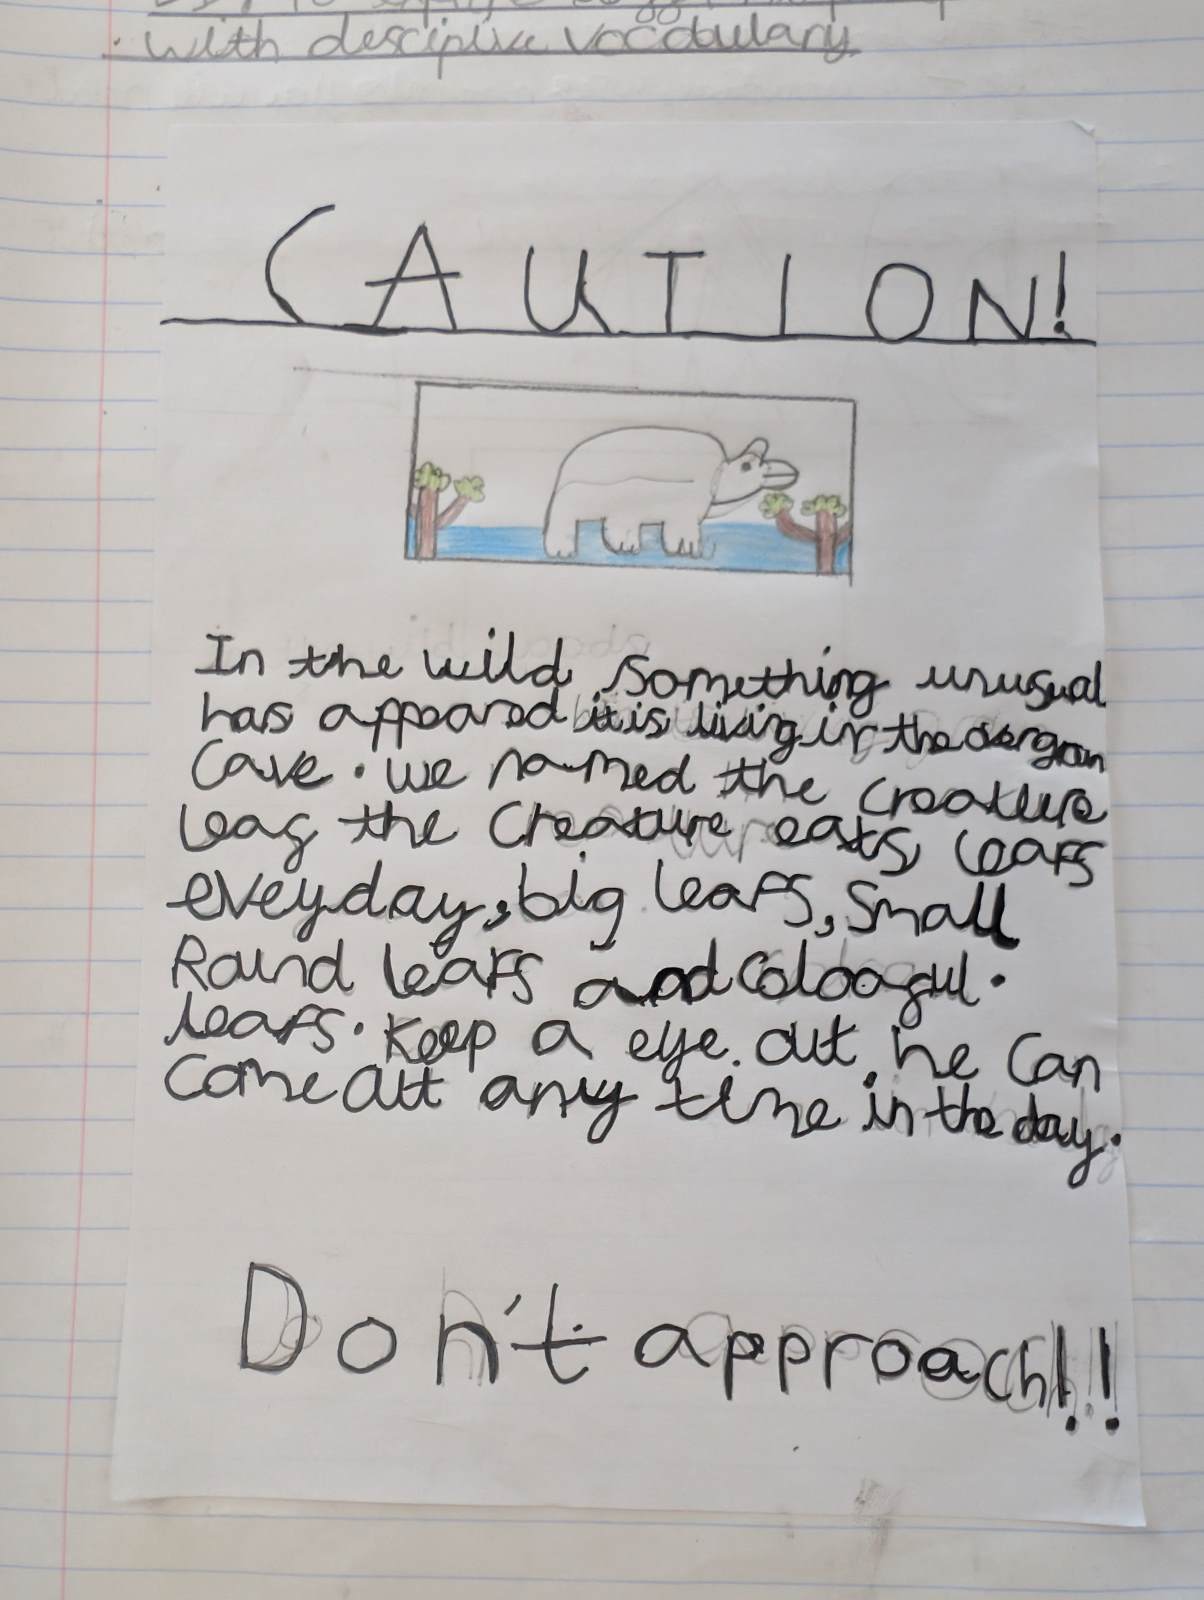 with desciptive vocabulary
CAUTION!
In the wild something unusual
has appeared it is living in the
cave. we named the creature
leag the creature eats leafs
everyday, big leafs, small
Round leafs and
leafs. Keep a eye out he can
come out any time in the day.
Don't approach!!